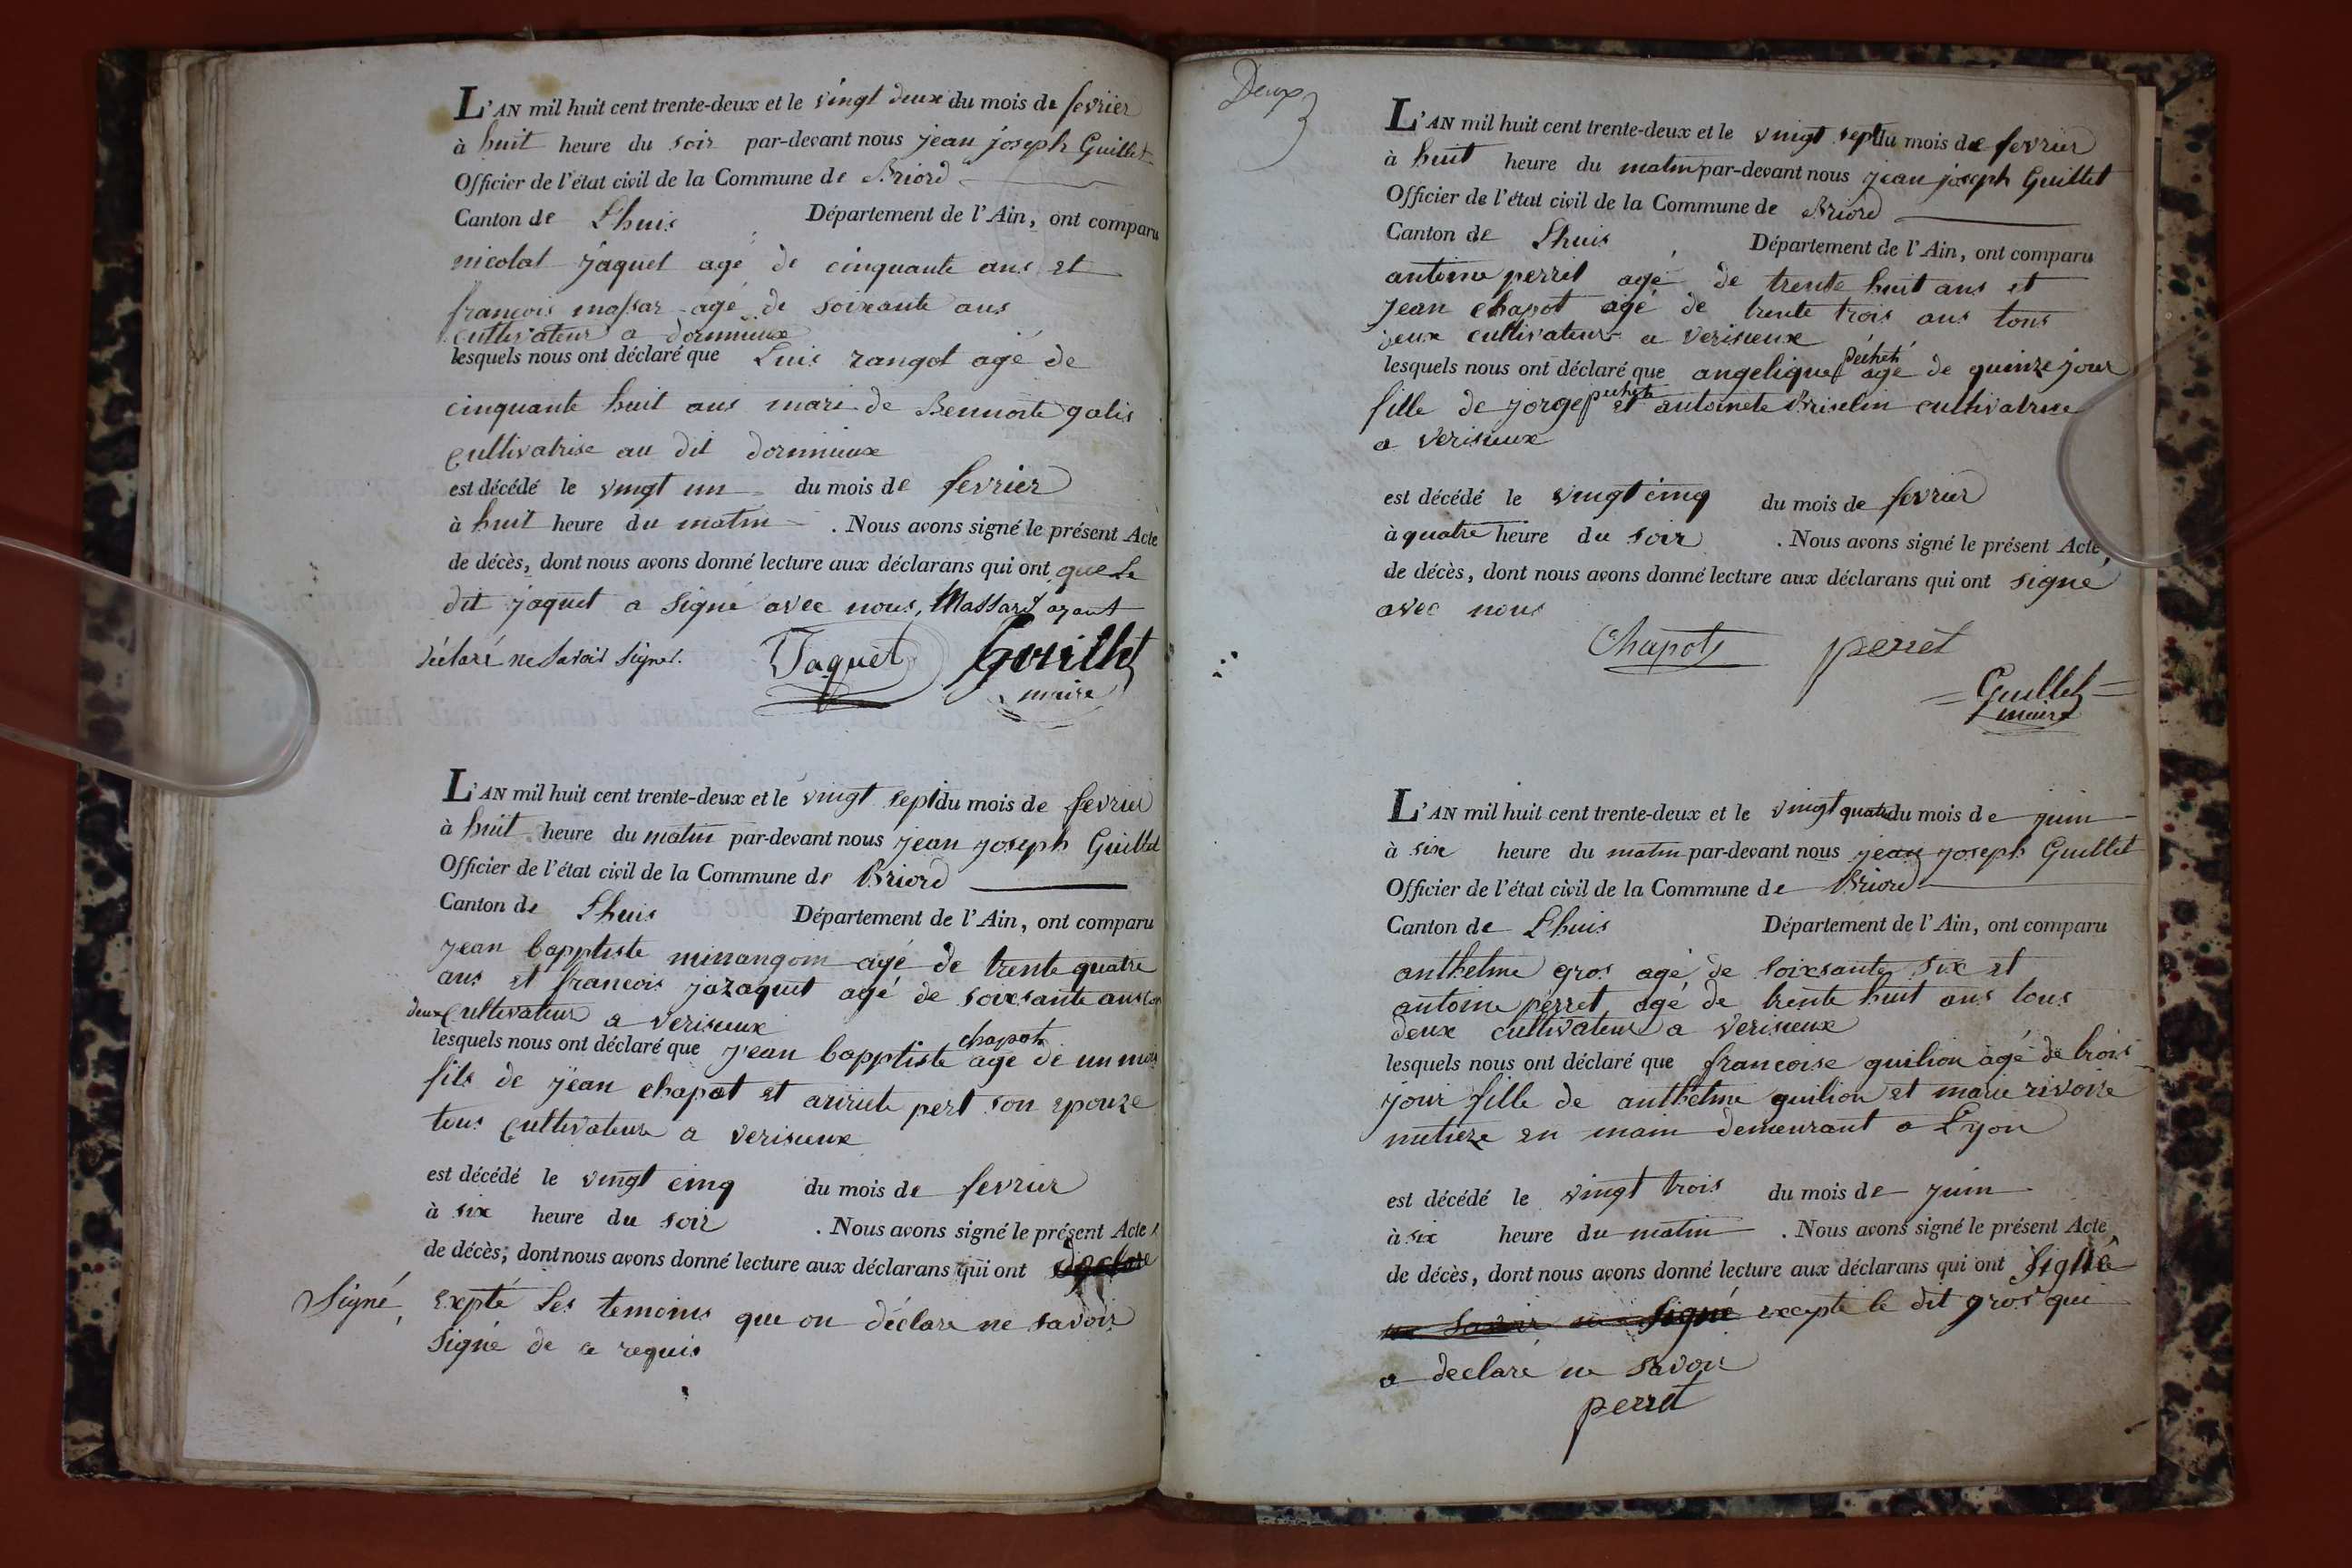 L'AN mil huit cent trente-deux et le vingt deux du mois de fevrier
à huit heure du soir par-devant nous jean joseph Guillet
Officier de l'état civil de la Commune de Briord
Canton de Lhuis Département de l'Ain, ont comparu
nicolat jaquet agé de cinquante ans et
françois massar agé de soixante ans
cultivateur a dornieux
lesquels nous ont déclaré que Luis rangot agé de
cinquante huit ans mari de Bennoite galis
cultivatrise au dit
est décédé le vingt un du mois de fevrier
à huit heure du matin . Nous avons signé le présent Acte
de décès, dont nous avons donné lecture aux déclarans qui ont que le
dit jaquet a signé avec nous, Massard ayant
déclaré ne savoir signer.
Jaquet Guillet
maire
L'AN mil huit cent trente-deux et le vingt sept du mois de fevrier
à huit heure du matin par-devant nous jean joseph Guillet
Officier de l'état civil de la Commune de Briord
Canton de Lhuis Département de l'Ain, ont comparu
jean bapptiste minangoin agé de trente quatre
ans et francois jazaquet agé de soixsante ans tous
deux cultivateur a verisieux
chapot
lesquels nous ont déclaré que jean bapptiste age de un mois
fils de jean chapot et pert son epouze
tous cultivateur a verisieux
est décédé le vingt cinq du mois de fevrier
à six heure du soir . Nous avons signé le présent Acte
de décès, dont nous avons donné lecture aux déclarans qui ont declare
Signé, expté les temoins que on déclare ne savoir
signé de ce requis
Deux
L'AN mil huit cent trente-deux et le vingt sept du mois de fevrier
à huit heure du matin par-devant nous jean joseph Guillet
Officier de l'état civil de la Commune de Briord
Canton de Lhuis , Département de l'Ain, ont comparu
antoine perret agé de trente huit ans et
jean chapot agé de trente trois ans tous
deux cultivateur a verisieux
péchet
lesquels nous ont déclaré que angelique age de quinze jour
pechet
fille de jorge et antoinete Briselin cultivatrise
a verisieux
est décédé le vingt cinq du mois de fevrier
à quatre heure du soir . Nous avons signé le présent Acte
de décès, dont nous avons donné lecture aux déclarans qui ont signé
avec nous
Chapot perret
Guillet
maire
L'AN mil huit cent trente-deux et le vingt quatre du mois de juin
à six heure du matin par-devant nous jean joseph Guillet
Officier de l'état civil de la Commune de Briord
Canton de Lhuis Département de l'Ain, ont comparu
anthelme gros agé de soixsante six et
antoine perret agé de trente huit ans tous
deux cultivateur a verisieux
lesquels nous ont déclaré que francoise guilion agé de trois
jour fille de anthelme guilion et marie rivoire
en demeurant a Lyon
est décédé le vingt trois du mois de juin
à six heure du matin . Nous avons signé le présent Acte
de décès, dont nous avons donné lecture aux déclarans qui ont signé
ne savoir signé excepté le dit gros qui
a declaré ne savoir
perret